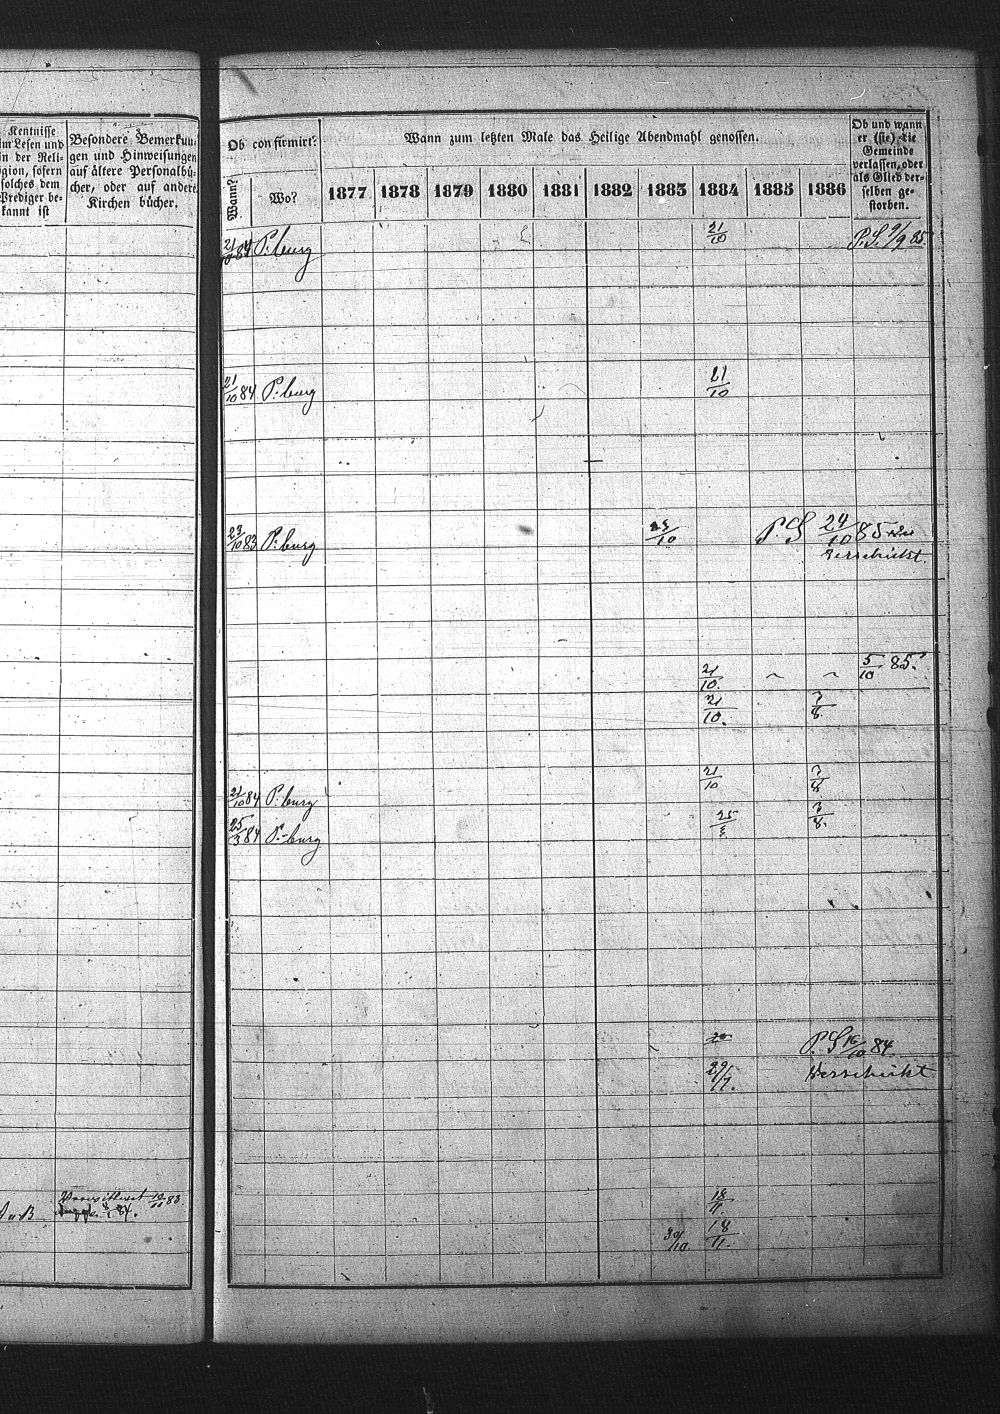 Kentnisse
im Lesen und
in der Reli-
gion, sofern
solches dem
Prediger be-
kannt ist
Besondere Bemerkun-
gen und Hinweisungen
auf ältere Personalbü-
cher, oder auf andere
Kirchen bücher.
Ob confirmirt?
Wann?
Wo?
Wann zum letzten Male das Heilige Abendmahl genossen.
1877 1878 1879 1880 1881 1882 1883 1884 1885 1886
Ob und wann
er (sie) die
Gemeinde
verlassen, oder
als Glied der-
selben ge-
storben.
21/10 84 P.-burg 21/10 P.S. 9/9 85.
21/10 84 P.-burg 21/10
23/10 83 P.-burg 23/10 P. S 24/10 85
Verschickt.
21/10. 5/10 85.
21/10. 3/8.
21/10 84 P.-burg 21/10 3/8
25/3 84 P.-burg 25/3 3/8.
P. S 16/10 84
29/7. Verschickt
10/11 83 18/11.
84.
30/10 18/11.